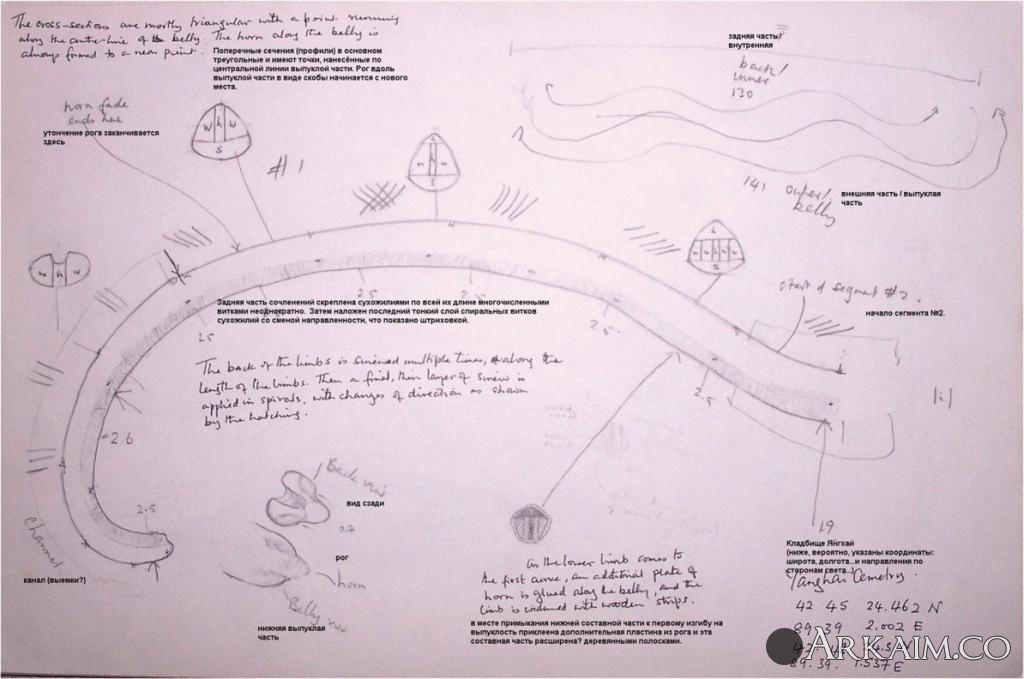 The cross-sections are mostly triangular with a point running
along the centre-line of the belly. The horn along the belly is
always formed to a near point.
Поперечные сечения (профили) в основном
треугольные и имеют точки, нанесённые по
центральной линии выпуклой части. Рог вдоль
выпуклой части в виде скобы начинается с нового
места.
задняя часть/
внутренняя
back/
inner
130
horn fade
ends here
утончение рога заканчивается
здесь
w h w
s
#1
141 outer/
belly
внешняя часть / выпуклая
часть
w h w
h
s
start of segment #2.
начало сегмента №2.
2.5
Задняя часть сочленений скреплена сухожилиями по всей их длине многочисленными
витками неоднократно. Затем наложен последний тонкий слой спиральных витков
сухожилий со сменой направленности, что показано штриховкой.
2.5
2.5
The back of the limbs is sinewed multiple times, along the
length of the limbs. Then a final, thin layer of sinew is
applied in spirals, with changes of direction as shown
by the hatching.
2.5
2.6
2.5
Back
вид сзади
channel
канал (выемки?)
рог
horn
Belly
нижняя выпуклая
часть
1.9
as the lower limb comes to
the first curve, an additional plate of
horn is glued along the belly, and the
limb is widened with wooden strips.
в месте примыкания нижней составной части к первому изгибу на
выпуклость приклеена дополнительная пластина из рога и эта
составная часть расширена? деревянными полосками.
Кладбище Янгхай
(ниже, вероятно, указаны координаты:
широта, долгота...и направления по
сторонам света...)
Yanghai Cemetry.
42 45 24.462 N
89.39 2.002 E
89.39. 1.537 E
ARKAIM.CO